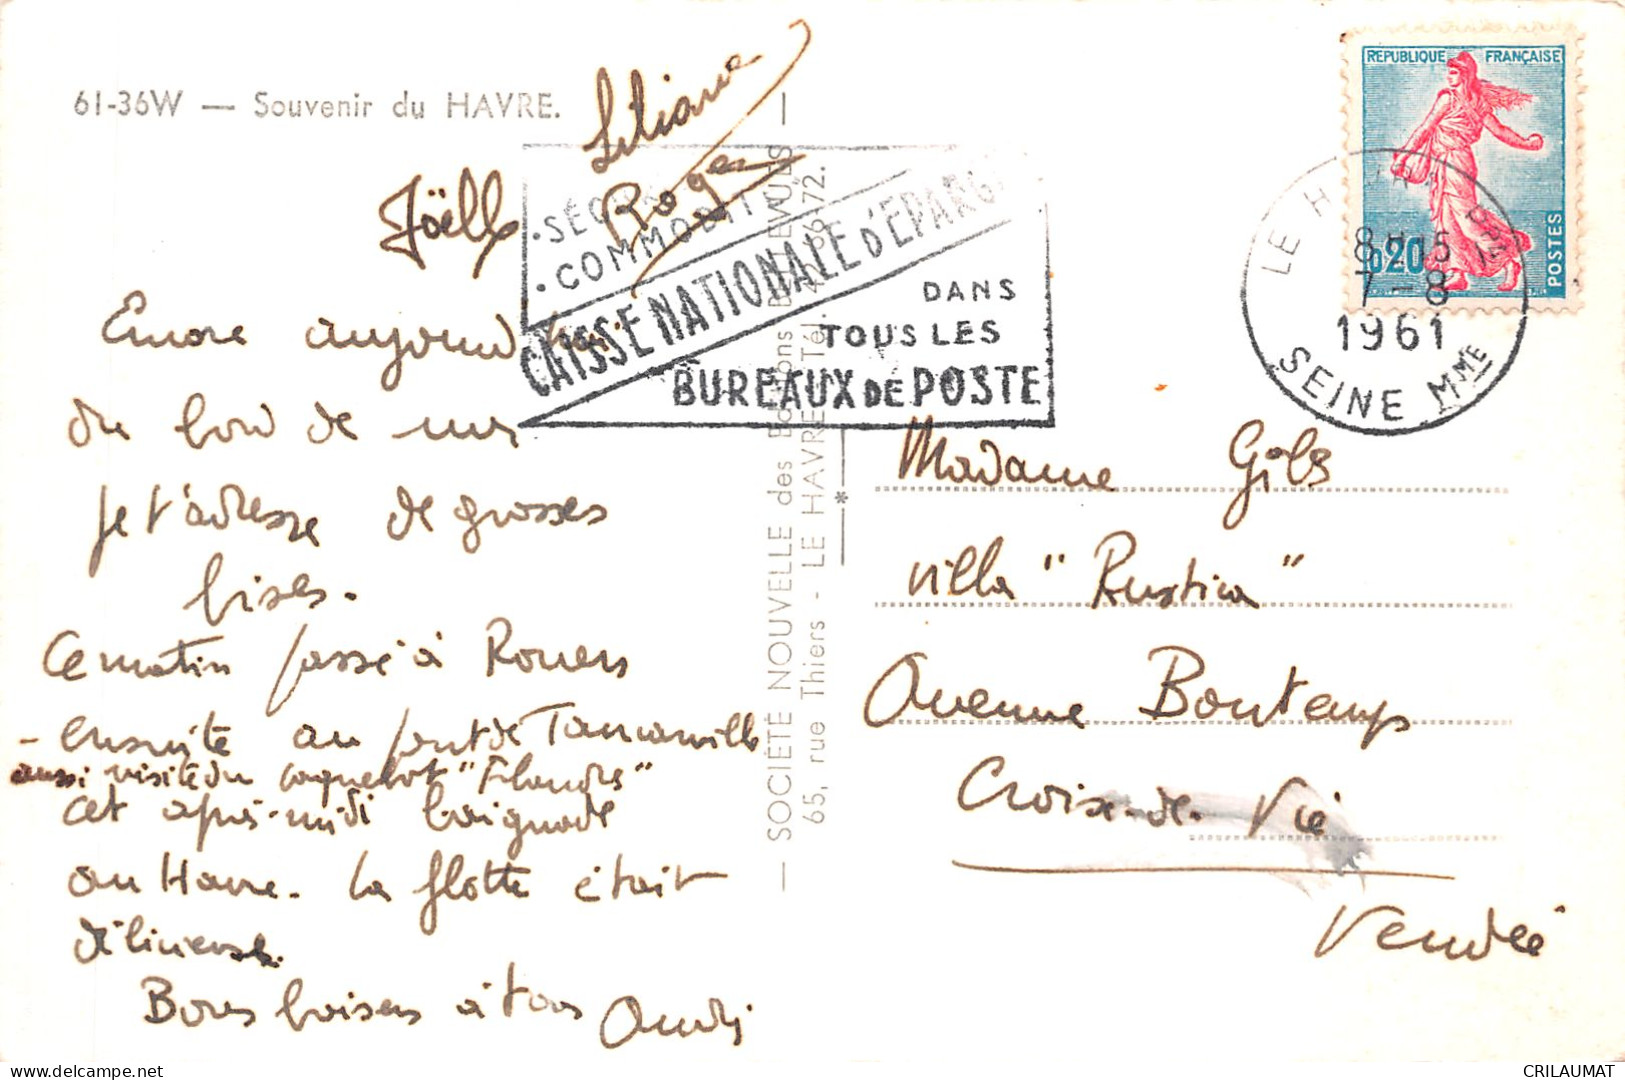 61-36W — Souvenir du HAVRE.
Liliane
Joëlle Roger
Encore aujourd'hui
du bord de mer
je t'adresse de grosses
bises.
Ce matin passé à Rouen
- ensuite au pont de Tancarville
aussi visite du paquebot "Flandre"
cet après-midi baignade
au Havre. La flotte était
délicieuse.
Bons baisers à tous André
— SOCIÉTÉ NOUVELLE des Editions BLEEVULS —
65, rue Thiers - LE HAVRE - Tél. 42.66-72.
*
· SÉCURITÉ
· COMMODITÉ
CAISSE NATIONALE D'EPARGNE
DANS
TOUS LES
BUREAUX DE POSTE
REPUBLIQUE FRANÇAISE
0,20
POSTES
LE HAVRE
8H15
7-8
1961
SEINE MME
Madame Gibs
Villa "Rustica"
Avenue Bontemps
Croix-de-Vie
Vendée
CRILAUMAT